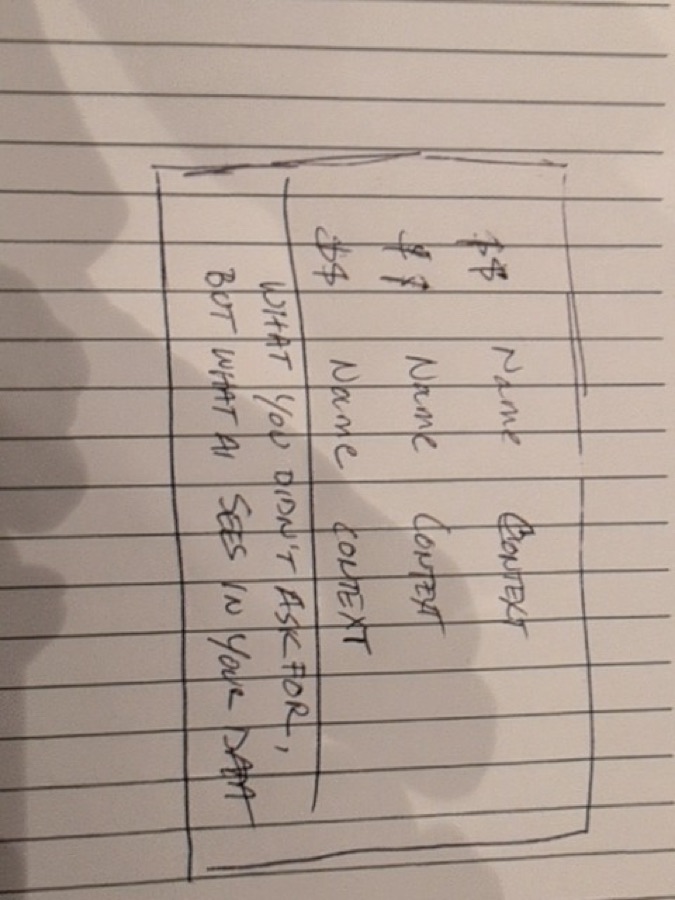 $$ Name CONTEXT
$$ Name CONTEXT
$$ Name CONTEXT
WHAT YOU DIDN'T ASK FOR,
BUT WHAT AI SEES IN YOUR DATA